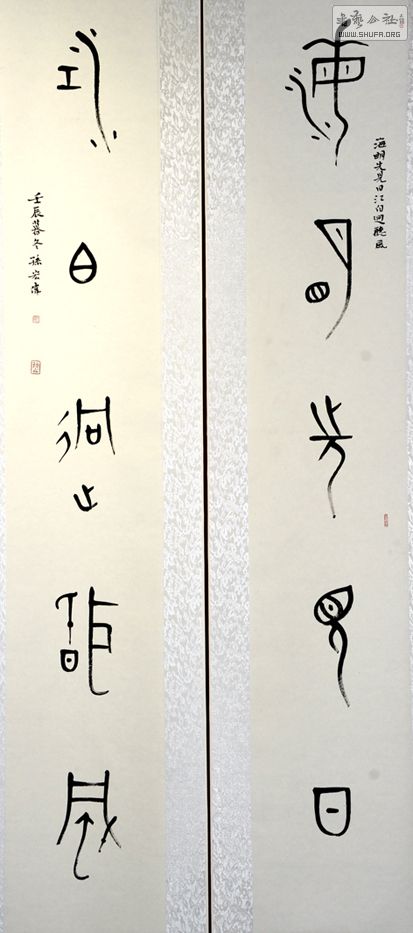 書藝公社
WWW.SHUFA.ORG
海明先見日
海明先見日江白迥聽風
江白迥聽風
壬辰暮冬孫宏偉